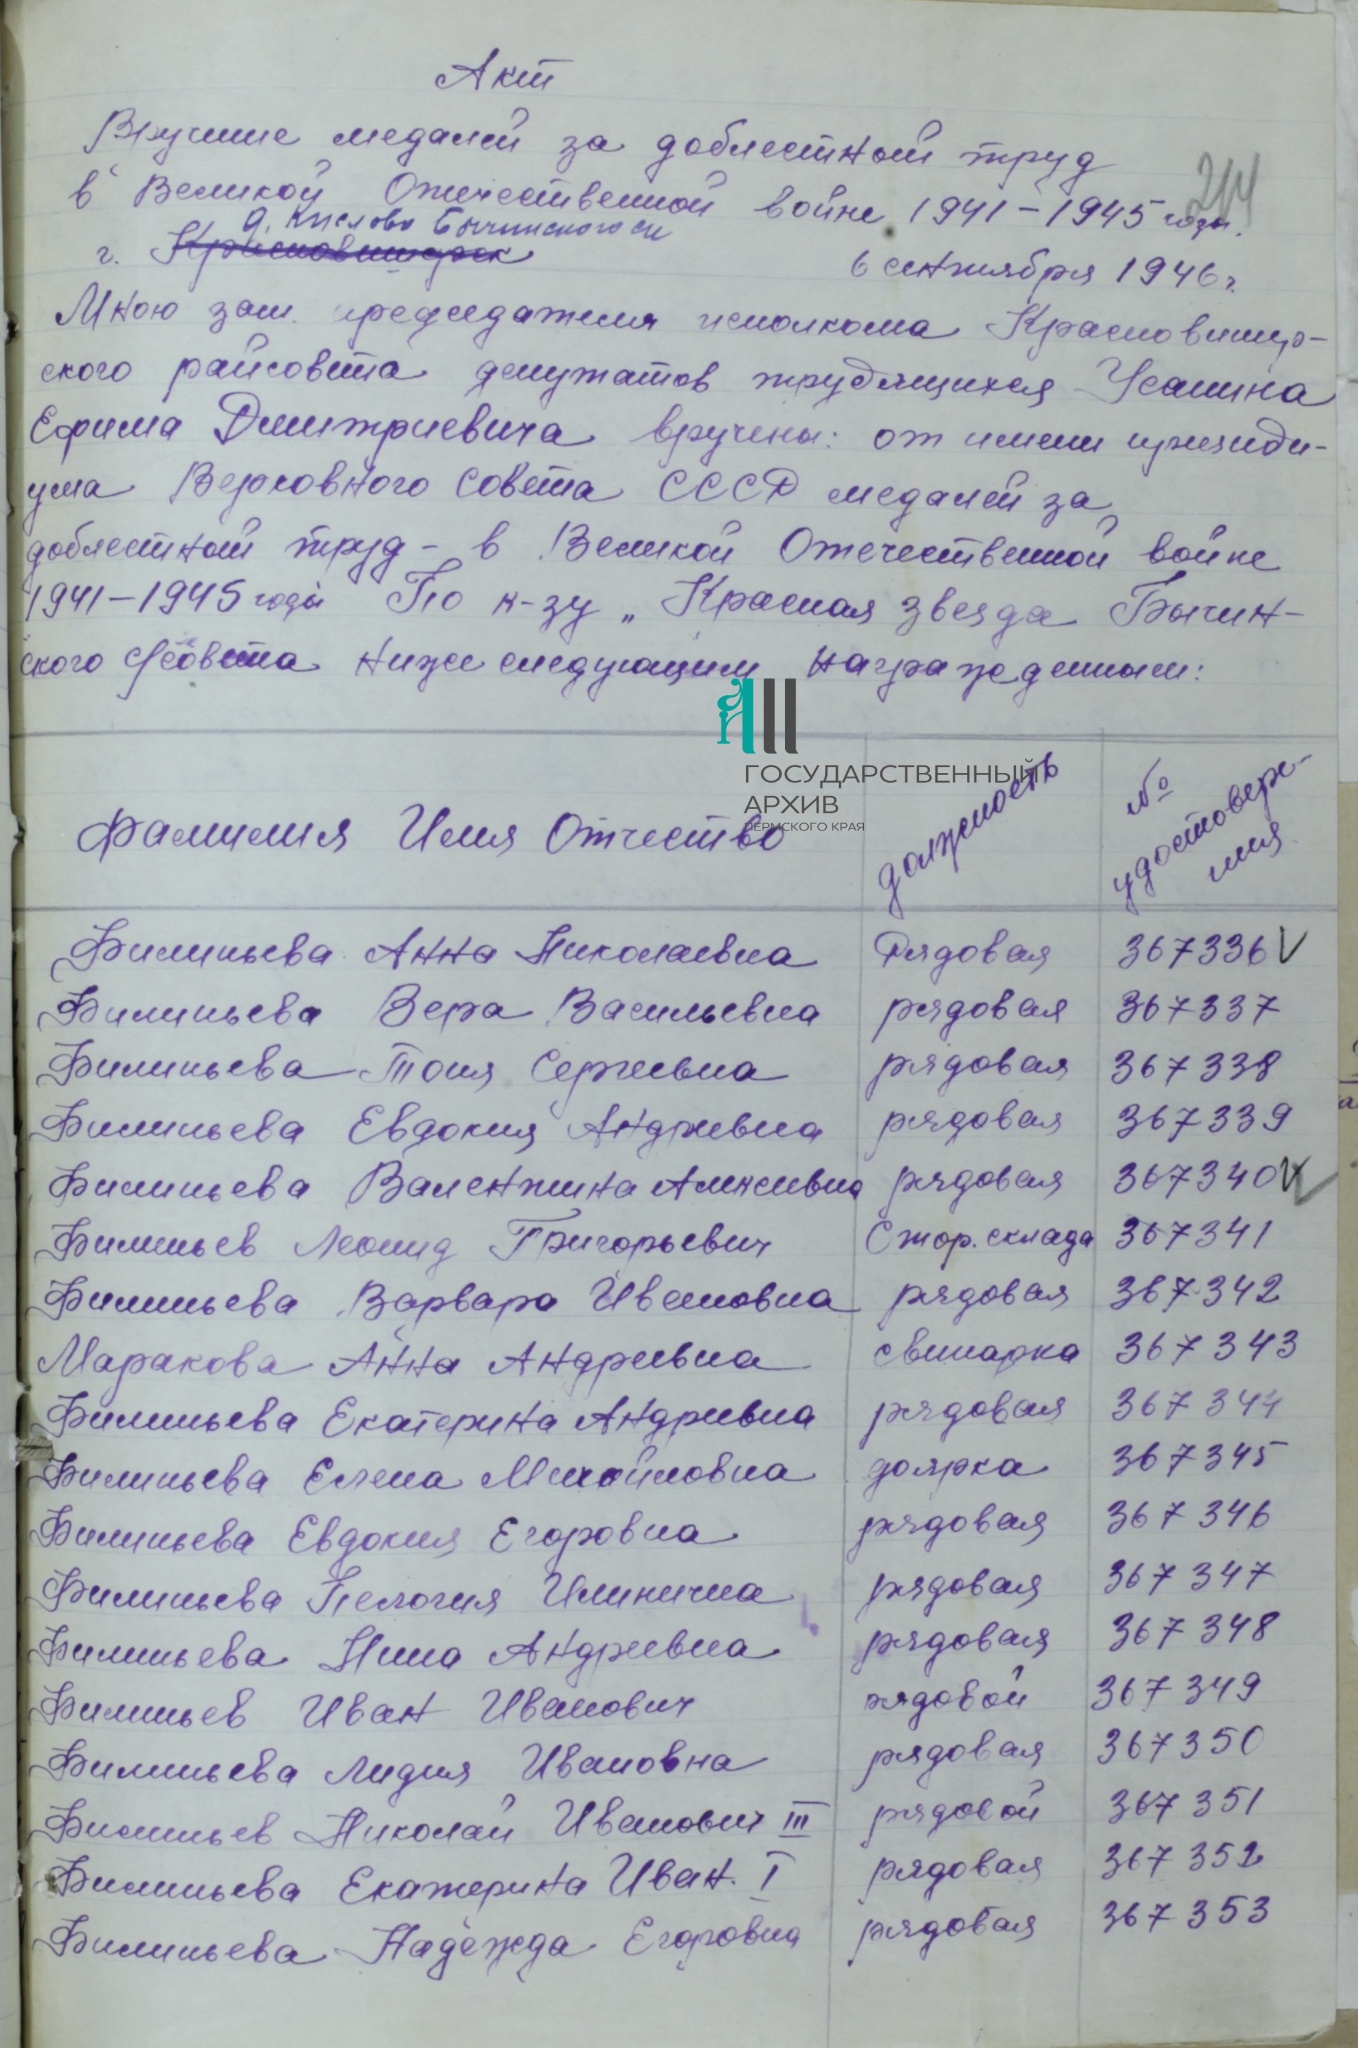 Акт
Вручние медалей за доблестный труд
244
в Великой Отечественной войне 1941-1945 годы.
д. Кислово Бычинского с/с
г. Красновишерск
6 сентября 1946 г.
Мною зам. председателя исполкома Красновишер-
ского райсовета депутатов трудящихся
Ефима Дмитриевича вручены: от имени президи-
ума Верховного Совета СССР медалей за
доблестный труд - в Великой Отечественной войне
1941-1945 годы По к-зу „Красная звезда Бычин-
ского с/совета ниже следующим награжденным:
ГОСУДАРСТВЕННЫЙ
АРХИВ
ПЕРМСКОГО КРАЯ
Фамилия Имя Отчество должность № удостовере-
ния
Анна Николаевна Рядовая 367336 V
Вера Васильевна рядовая 367337
Тоня Сергеевна рядовая 367338
Евдокия Андреевна рядовая 367339
Валентина Алексеевна рядовая 367340 V
Леонид Григорьевич Стор. склада 367341
Варвара Ивановна рядовая 367342
Маракова Анна Андреевна свинарка 367343
Екатерина Андреевна рядовая 367344
Елена Михайловна доярка 367345
Евдокия Егоровна рядовая 367346
Пелогия Илинична рядовая 367347
Нина Андреевна рядовая 367348
Иван Иванович рядовой 367349
Лидия Ивановна рядовая 367350
Николай Иванович III рядовой 367351
Екатерина Иван. I рядовая 367352
Надежда Егоровна рядовая 367353